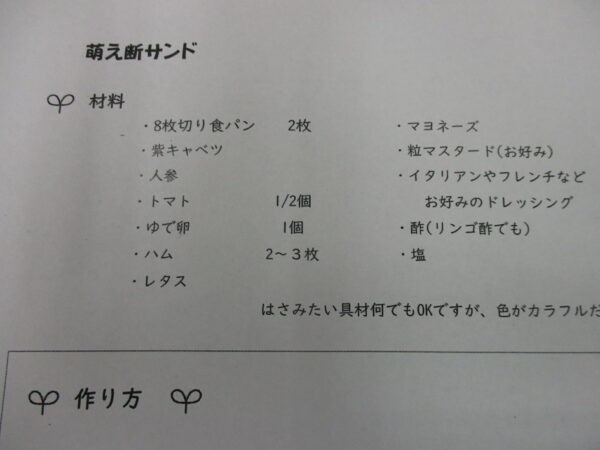 萌え断サンド
材料
・8枚切り食パン 2枚
・紫キャベツ
・人参
・トマト 1/2個
・ゆで卵 1個
・ハム 2～3枚
・レタス
・マヨネーズ
・粒マスタード(お好み)
・イタリアンやフレンチなど
お好みのドレッシング
・酢(リンゴ酢でも)
・塩
はさみたい具材何でもOKですが、色がカラフルだ
作り方